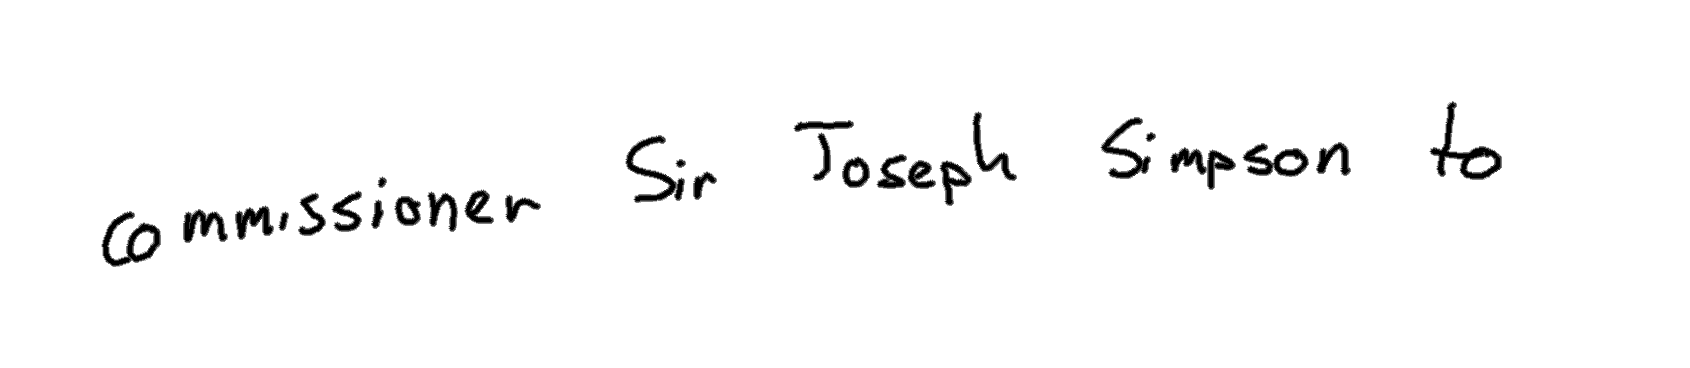 commissioner Sir Joseph Simpson to